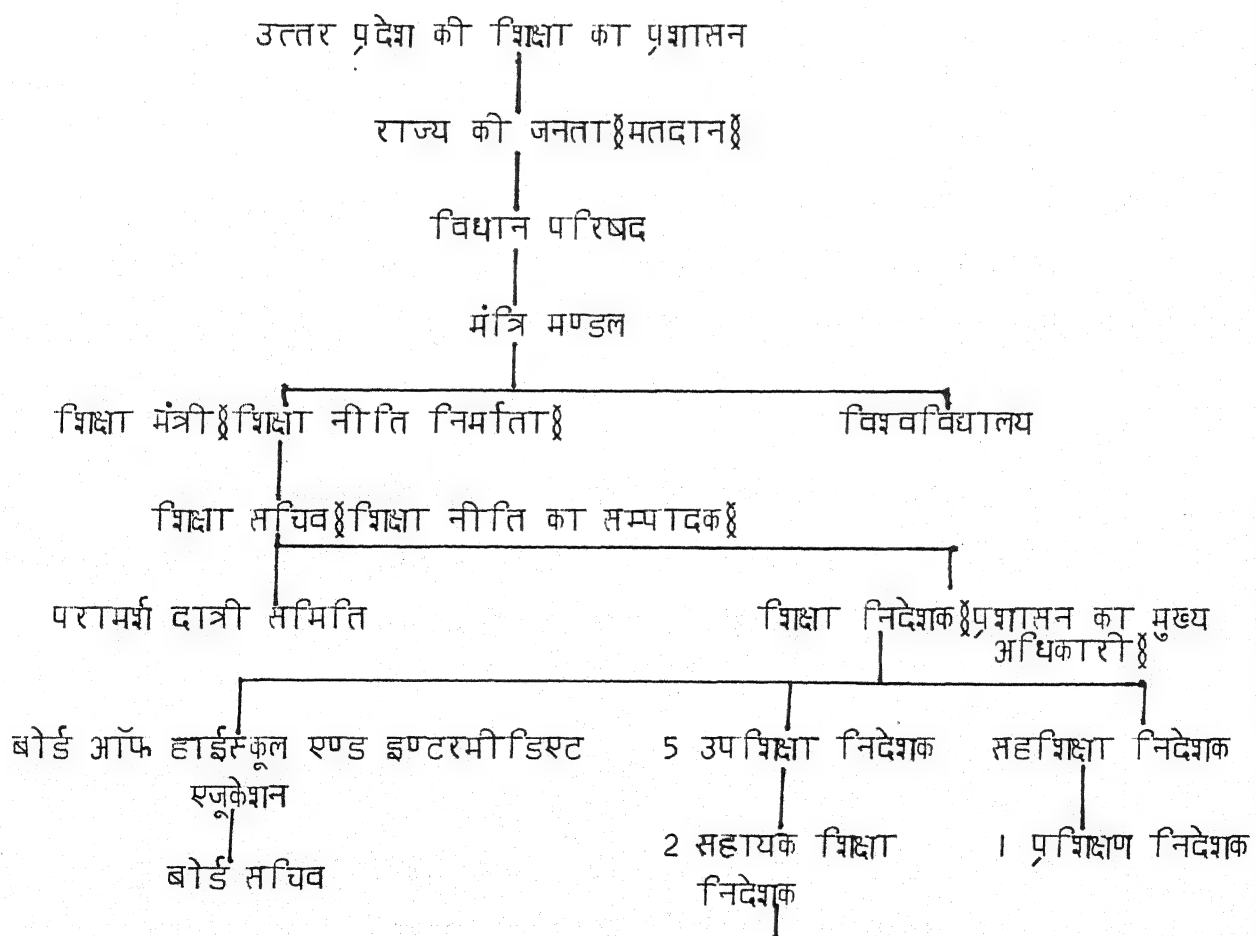 उत्तर प्रदेश की शिक्षा का प्रशासन
राज्य की जनता§मतदान§
विधान परिषद
मंत्रि मण्डल
शिक्षा मंत्री§शिक्षा नीति निर्माता§ विश्वविद्यालय
शिक्षा सचिव§शिक्षा नीति का सम्पादक§
परामर्श दात्री समिति शिक्षा निदेशक§प्रशासन का मुख्य
अधिकारी§
बोर्ड ऑफ हाईस्कूल एण्ड इण्टरमीडिएट 5 उपशिक्षा निदेशक सहशिक्षा निदेशक
एजूकेशन
2 सहायक शिक्षा 1 प्रशिक्षण निदेशक
बोर्ड सचिव
निदेशक